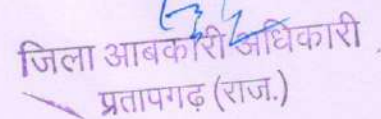 जिला आबकारी अधिकारी
प्रतापगढ़ (राज.)